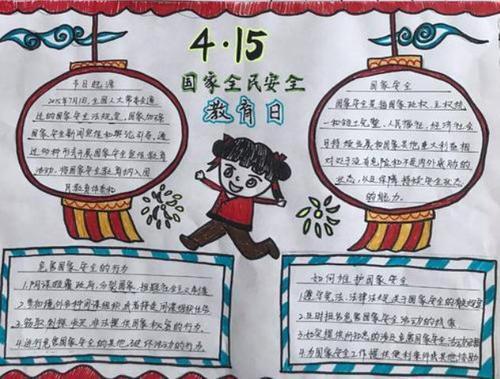 4·15
国家全民安全
教育日
节日起源
2015年7月1日,全国人大常委会通
过的国家安全法规定,国家加强
国家安全新闻宣传和舆论引导,通
过多种形式开展国家安全宣传教育
活动,将国家安全教育纳入国
民教育体系和
国家安全
国家安全是指国家政权、主权统
一和领土完整、人民福祉、经济社会
可持续发展和国家其他重大利益相
对处于没有危险和不受内外威胁的
状态,以及保障持续安全状态
的能力。
危害国家安全的行为
1.阴谋颠覆政府,分裂国家,推翻社会主义制度
2.参加境外各种间谍组织或者接受间谍组织任务
3.窃取刺探收买非法提供国家秘密的行为.
4.进行危害国家安全的其他破坏活动的行为
如何维护国家安全
1.遵守宪法、法律法规关于国家安全的有关规定
2.及时报告危害国家安全活动的线索
3.如实提供所知悉的涉及危害国家安全活动证据
4.为国家安全工作提供便利条件或其他协助